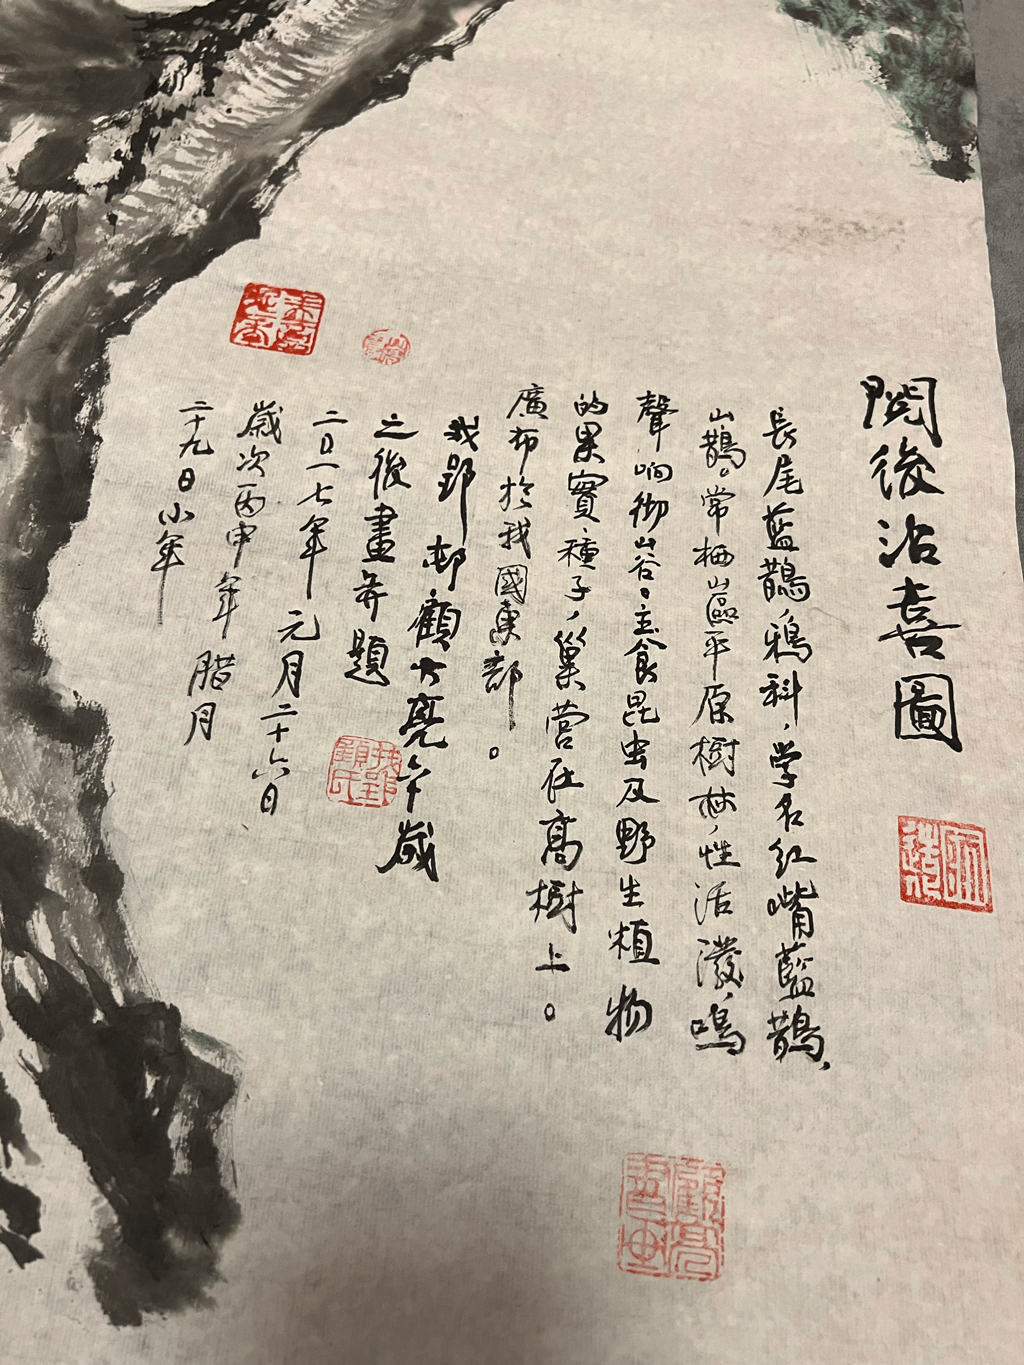 閱後沾喜圖
長尾藍鵲，鴉科，学名红嘴藍鵲、
山鵲。常栖山區平原樹林，性活潑，鳴
聲响彻山谷。主食昆虫及野生植物
的果實、種子，巢营在高樹上。
廣布於我國東部。
我郢邨顧大亮年歲
之後畫并題
二〇一七年元月二十六日
歲次丙申年腊月
二十九日小年
顧亮書画